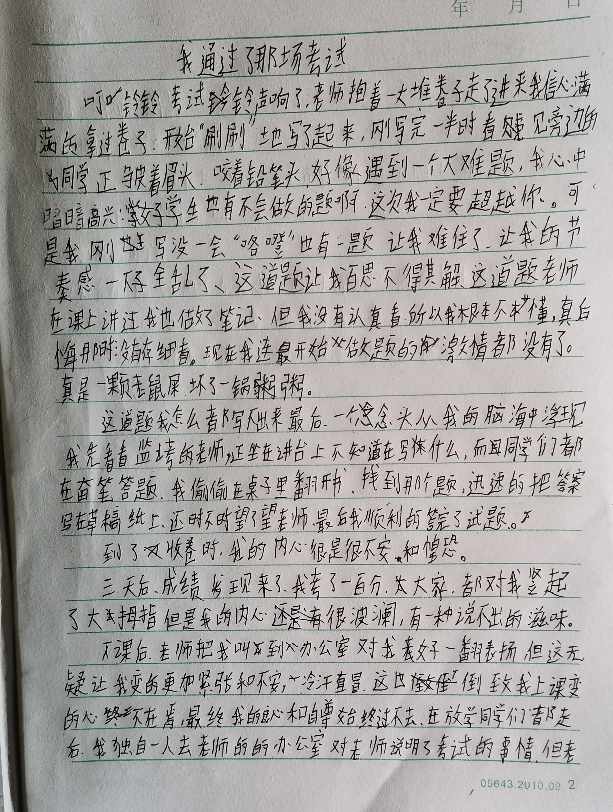 年 月 日
我通过了那场考试
叮叮铃铃 考试铃铃声响了,老师抱着一大堆卷子走了进来我信心满
满的拿过卷子.开始"刷刷"地写了起来,刚写完一半时看见旁边的
同学正皱着眉头.咬着铅笔头,好像遇到一个大难题,我心中
暗暗高兴:好学生也有不会做的题啊.这次我一定要超越你。可
是我刚写没一会"咯噔"也有一题让我难住了.让我的节
奏感一下全乱了、这道题让我百思不得其解.这道题老师
在课上讲过我也做好了笔记、但我没有认真看所以我根本不懂,真后
悔那时没有仔细看。现在我连最开始做题的激情都没有了。
真是一颗老鼠屎坏了一锅粥。
这道题我怎么都写不出来最后.一个念头从我的脑海中浮现
我先看看监考的老师,正坐在讲台上不知道在写什么,而且同学们都
在奋笔答题.我偷偷在桌子里翻开书、找到那个题,迅速的把答案
写在草稿纸上、还时不时望了望老师最后我顺利的答完了试题。
到了收卷时.我的内心很是很不安.和惶恐。
三天后.成绩发现来了.我考了一百分.大家.都对我竖起
了大拇指但是我的内心还是有很波澜,有一种说不出的滋味。
下课后.老师把我叫到办公室对我表好一翻表扬.但这无
疑让我变的更加紧张和不安,冷汗直冒.这也倒致我上课变
的心不在焉,最终我的心和自尊始终过不去.在放学同学们都走
后.我独自一人去老师的的办公室对老师说明了考试的事情.但老
05643.2010.09 2